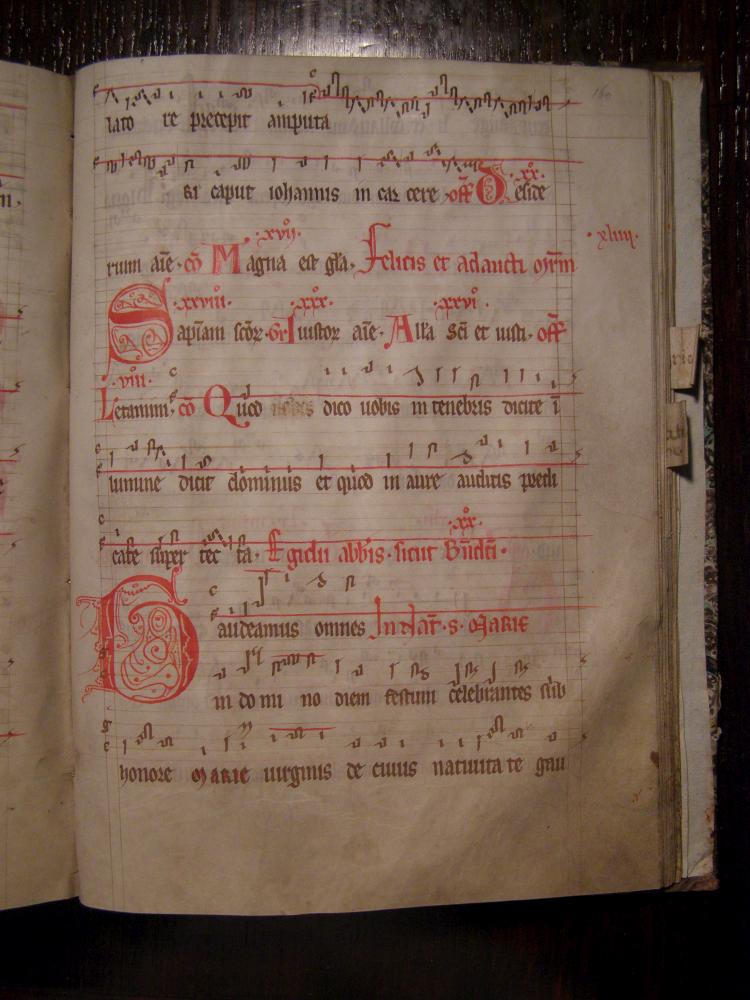 160
lato re precepit amputa
ri caput iohannis in car cere off Deside
·xx·
rum aīe· cō Magna est gl̄a· Felicis et adaucti
·xvij·
·xliiij·
Sapīam scōr· Gr̄ Iustor aīe· All'a Sc̄i et iusti· off
·xxviii· ·xxx· ·xxvi·
Letamini· cō Quod dico uobis in tenebris dicite ī
·viii·
lumine dicit dominus et quod in aure auditis predi
cate super tec ta· Egidii abb̄is· sicut Bn̄dc̄ti·
·xx·
Gaudeamus omnes In nat̄· s· MARIE
in do mi no diem festum celebrantes sub
honore MARIE uirginis de cuius natiuita te gau